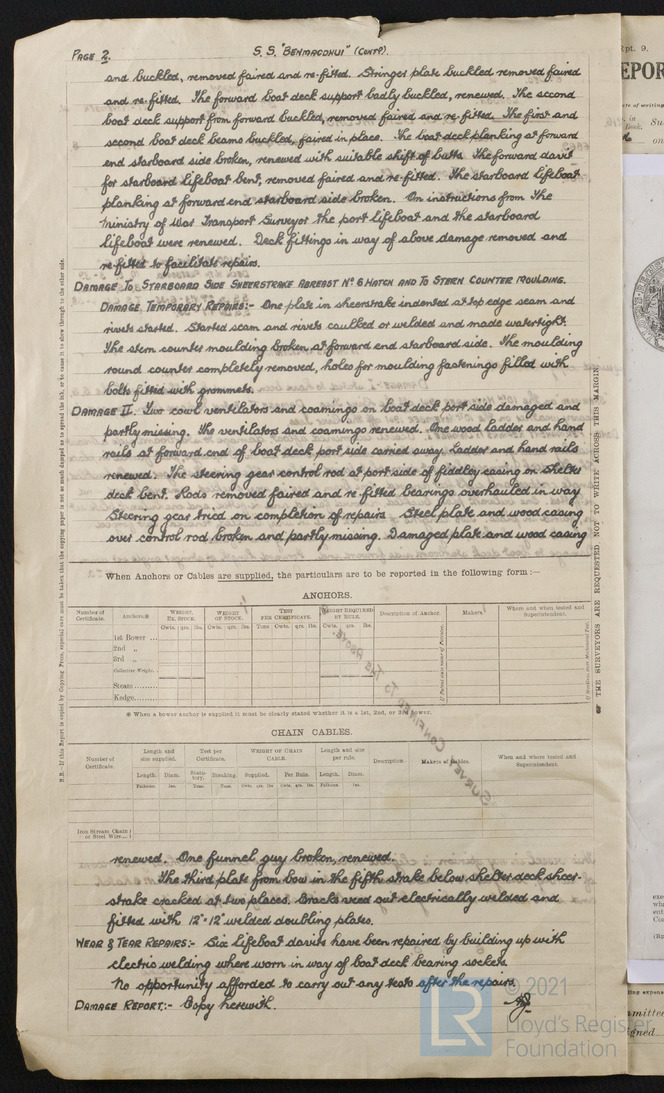 PAGE 2.
S.S. "BENMACDHUI" (CONTD).
and buckled, removed faired and re-fitted. Stringer plate buckled removed faired
and re-fitted. The forward boat deck support badly buckled, renewed. The second
boat deck support from forward buckled, removed faired and re-fitted. The first and
second boat deck beams buckled, faired in place. The boat deck planking at forward
end starboard side broken, renewed with suitable shift of butts. The forward davit
for starboard lifeboat bent, removed faired and re-fitted. The starboard lifeboat
planking at forward end starboard side broken. On instructions from the
ministry of War Transport Surveyor the port lifeboat and the starboard
lifeboat were renewed. Deck fittings in way of above damage removed and
re-fitted to facilitate repairs.
DAMAGE TO STARBOARD SIDE SHEERSTRAKE ABREAST No 6 HATCH AND TO STERN COUNTER MOULDING.
DAMAGE TEMPORARY REPAIRS:- One plate in sheerstrake indented at top edge seam and
rivets started. Started seam and rivets caulked or welded and made watertight.
The stern counter moulding broken at forward end starboard side. The moulding
round counter completely removed, holes for moulding fastenings filled with
bolts fitted with grommets.
DAMAGE II. Two cowl ventilators and coamings on boat deck port side damaged and
partly missing. The ventilators and coamings renewed. One wood ladder and hand
rails at forward end of boat deck port side carried away. Ladder and hand rails
renewed. The steering gear control rod at port side of fiddley casing on shelter
deck bent. Rods removed faired and re-fitted bearings overhauled in way
Steering gear tried on completion of repairs. Steel plate and wood casing
over control rod broken and partly missing. Damaged plate and wood casing
When Anchors or Cables are supplied, the particulars are to be reported in the following form:—
ANCHORS.
Number of Certificate. Anchors.* WEIGHT. EX. STOCK. WEIGHT OF STOCK. TEST PER CERTIFICATE. WEIGHT REQUIRED BY RULE. Description of Anchor. Makers. Where and when tested and Superintendent.
Cwts. qrs. lbs. Cwts. qrs. lbs. Tons Cwts. qrs. lbs. Cwts. qrs. lbs.
1st Bower ...
2nd „
3rd „
Collective Weight.
Stream.........
Kedge.........
* When a bower anchor is supplied it must be clearly stated whether it is a 1st, 2nd, or 3rd bower.
CHAIN CABLES.
Number of Certificate. Length and size supplied. Test per Certificate. WEIGHT OF CHAIN CABLE. Length and size per rule. Description. Makers of Cables. When and where tested and Superintendent.
Length. Diam. Statutory. Breaking. Supplied. Per Rule. Length. Diam.
Fathoms. Ins. Tons. Tons. Cwts. qrs. lbs. Cwts. qrs. lbs. Fathoms. Ins.
Iron Stream Chain or Steel Wire...
renewed. One funnel guy broken, renewed.
The third plate from bow in the fifth strake below shelter deck sheer-
strake cracked at two places. Cracks veed out electrically welded and
fitted with 12" x 12" welded doubling plates.
WEAR & TEAR REPAIRS:- Six lifeboat davits have been repaired by building up with
electric welding where worn in way of boat deck bearing sockets.
No opportunity afforded to carry out any tests after the repairs.
DAMAGE REPORT:- Copy herewith.
THE SURVEYORS ARE REQUESTED NOT TO WRITE ACROSS THIS MARGIN.
Rpt. 9.
© 2021
LR
Lloyd's Register
Foundation